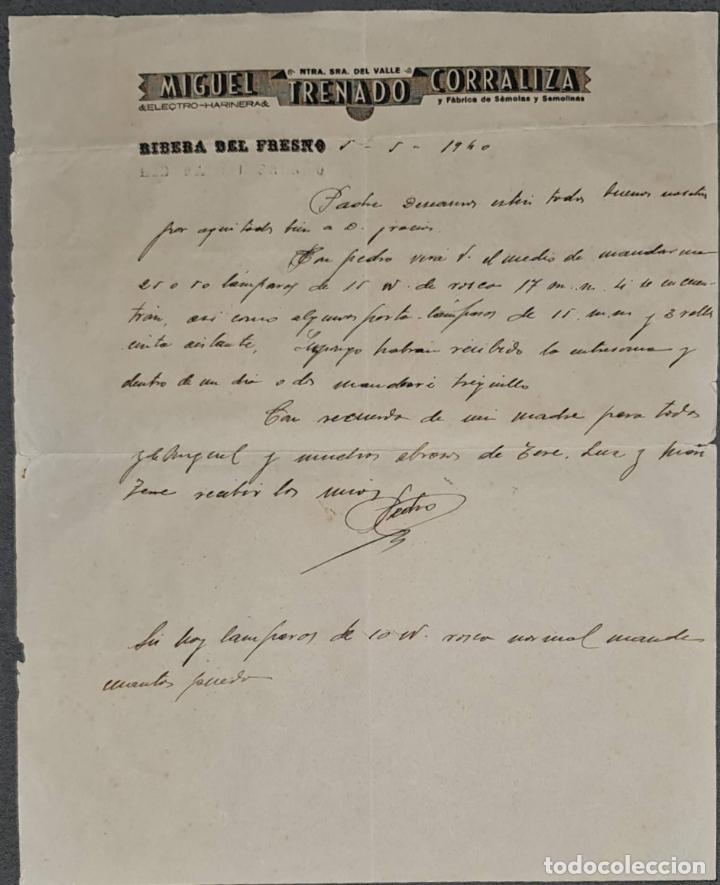 NTRA. SRA. DEL VALLE
MIGUEL TRENADO CORRALIZA
ELECTRO-HARINERA y Fábrica de Sémolas y Semolinas
RIBERA DEL FRESNO 5-5-1940
Padre Deseamos estén todos buenos nosotros
por aquí todos bien a D. gracias.
Con pedro verá V. el medio de mandarme
25 o 50 lámparas de 15 W. de rosca 17 m.m. si se encuen-
tran, así como algunos porta-lámparas de 15 m.m y 3 rollos
cinta aislante, Supongo habrán recibido la y
dentro de un dia o dos mandaré triguillo
Con recuerdo de mi madre para todos
y Miguel y muchos abrazos de Tere, Luz y
reciba los míos
Pedro
Si hay lámparas de 10 W. rosca normal mande
cuantas pueda
todocoleccion